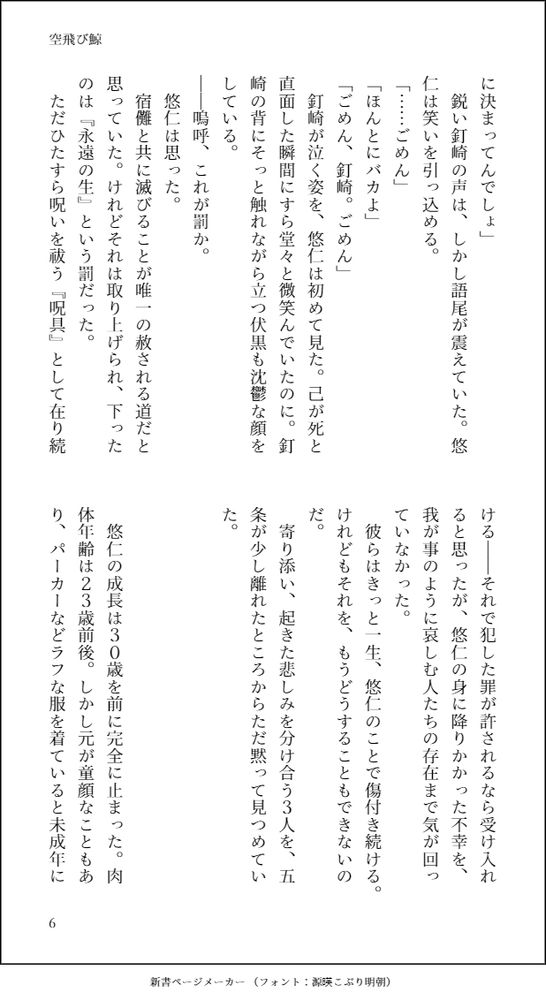 空飛び鯨
に決まってんでしょ」
　鋭い釘崎の声は、しかし語尾が震えていた。悠
仁は笑いを引っ込める。
「……ごめん」
「ほんとにバカよ」
「ごめん、釘崎。ごめん」
　釘崎が泣く姿を、悠仁は初めて見た。己が死と
直面した瞬間にすら堂々と微笑んでいたのに。釘
崎の背にそっと触れながら立つ伏黒も沈鬱な顔を
している。
――嗚呼、これが罰か。
　悠仁は思った。
　宿儺と共に滅びることが唯一の赦される道だと
思っていた。けれどそれは取り上げられ、下った
のは『永遠の生』という罰だった。
　ただひたすら呪いを祓う『呪具』として在り続
ける――それで犯した罪が許されるなら受け入れ
ると思ったが、悠仁の身に降りかかった不幸を、
我が事のように哀しむ人たちの存在まで気が回っ
ていなかった。
　彼らはきっと一生、悠仁のことで傷付き続ける。
けれどもそれを、もうどうすることもできないの
だ。
　寄り添い、起きた悲しみを分け合う３人を、五
条が少し離れたところからただ黙って見つめてい
た。
　悠仁の成長は３０歳を前に完全に止まった。肉
体年齢は２３歳前後。しかし元が童顔なこともあ
り、パーカーなどラフな服を着ていると未成年に
6
新書ページメーカー（フォント：源暎こぶり明朝）